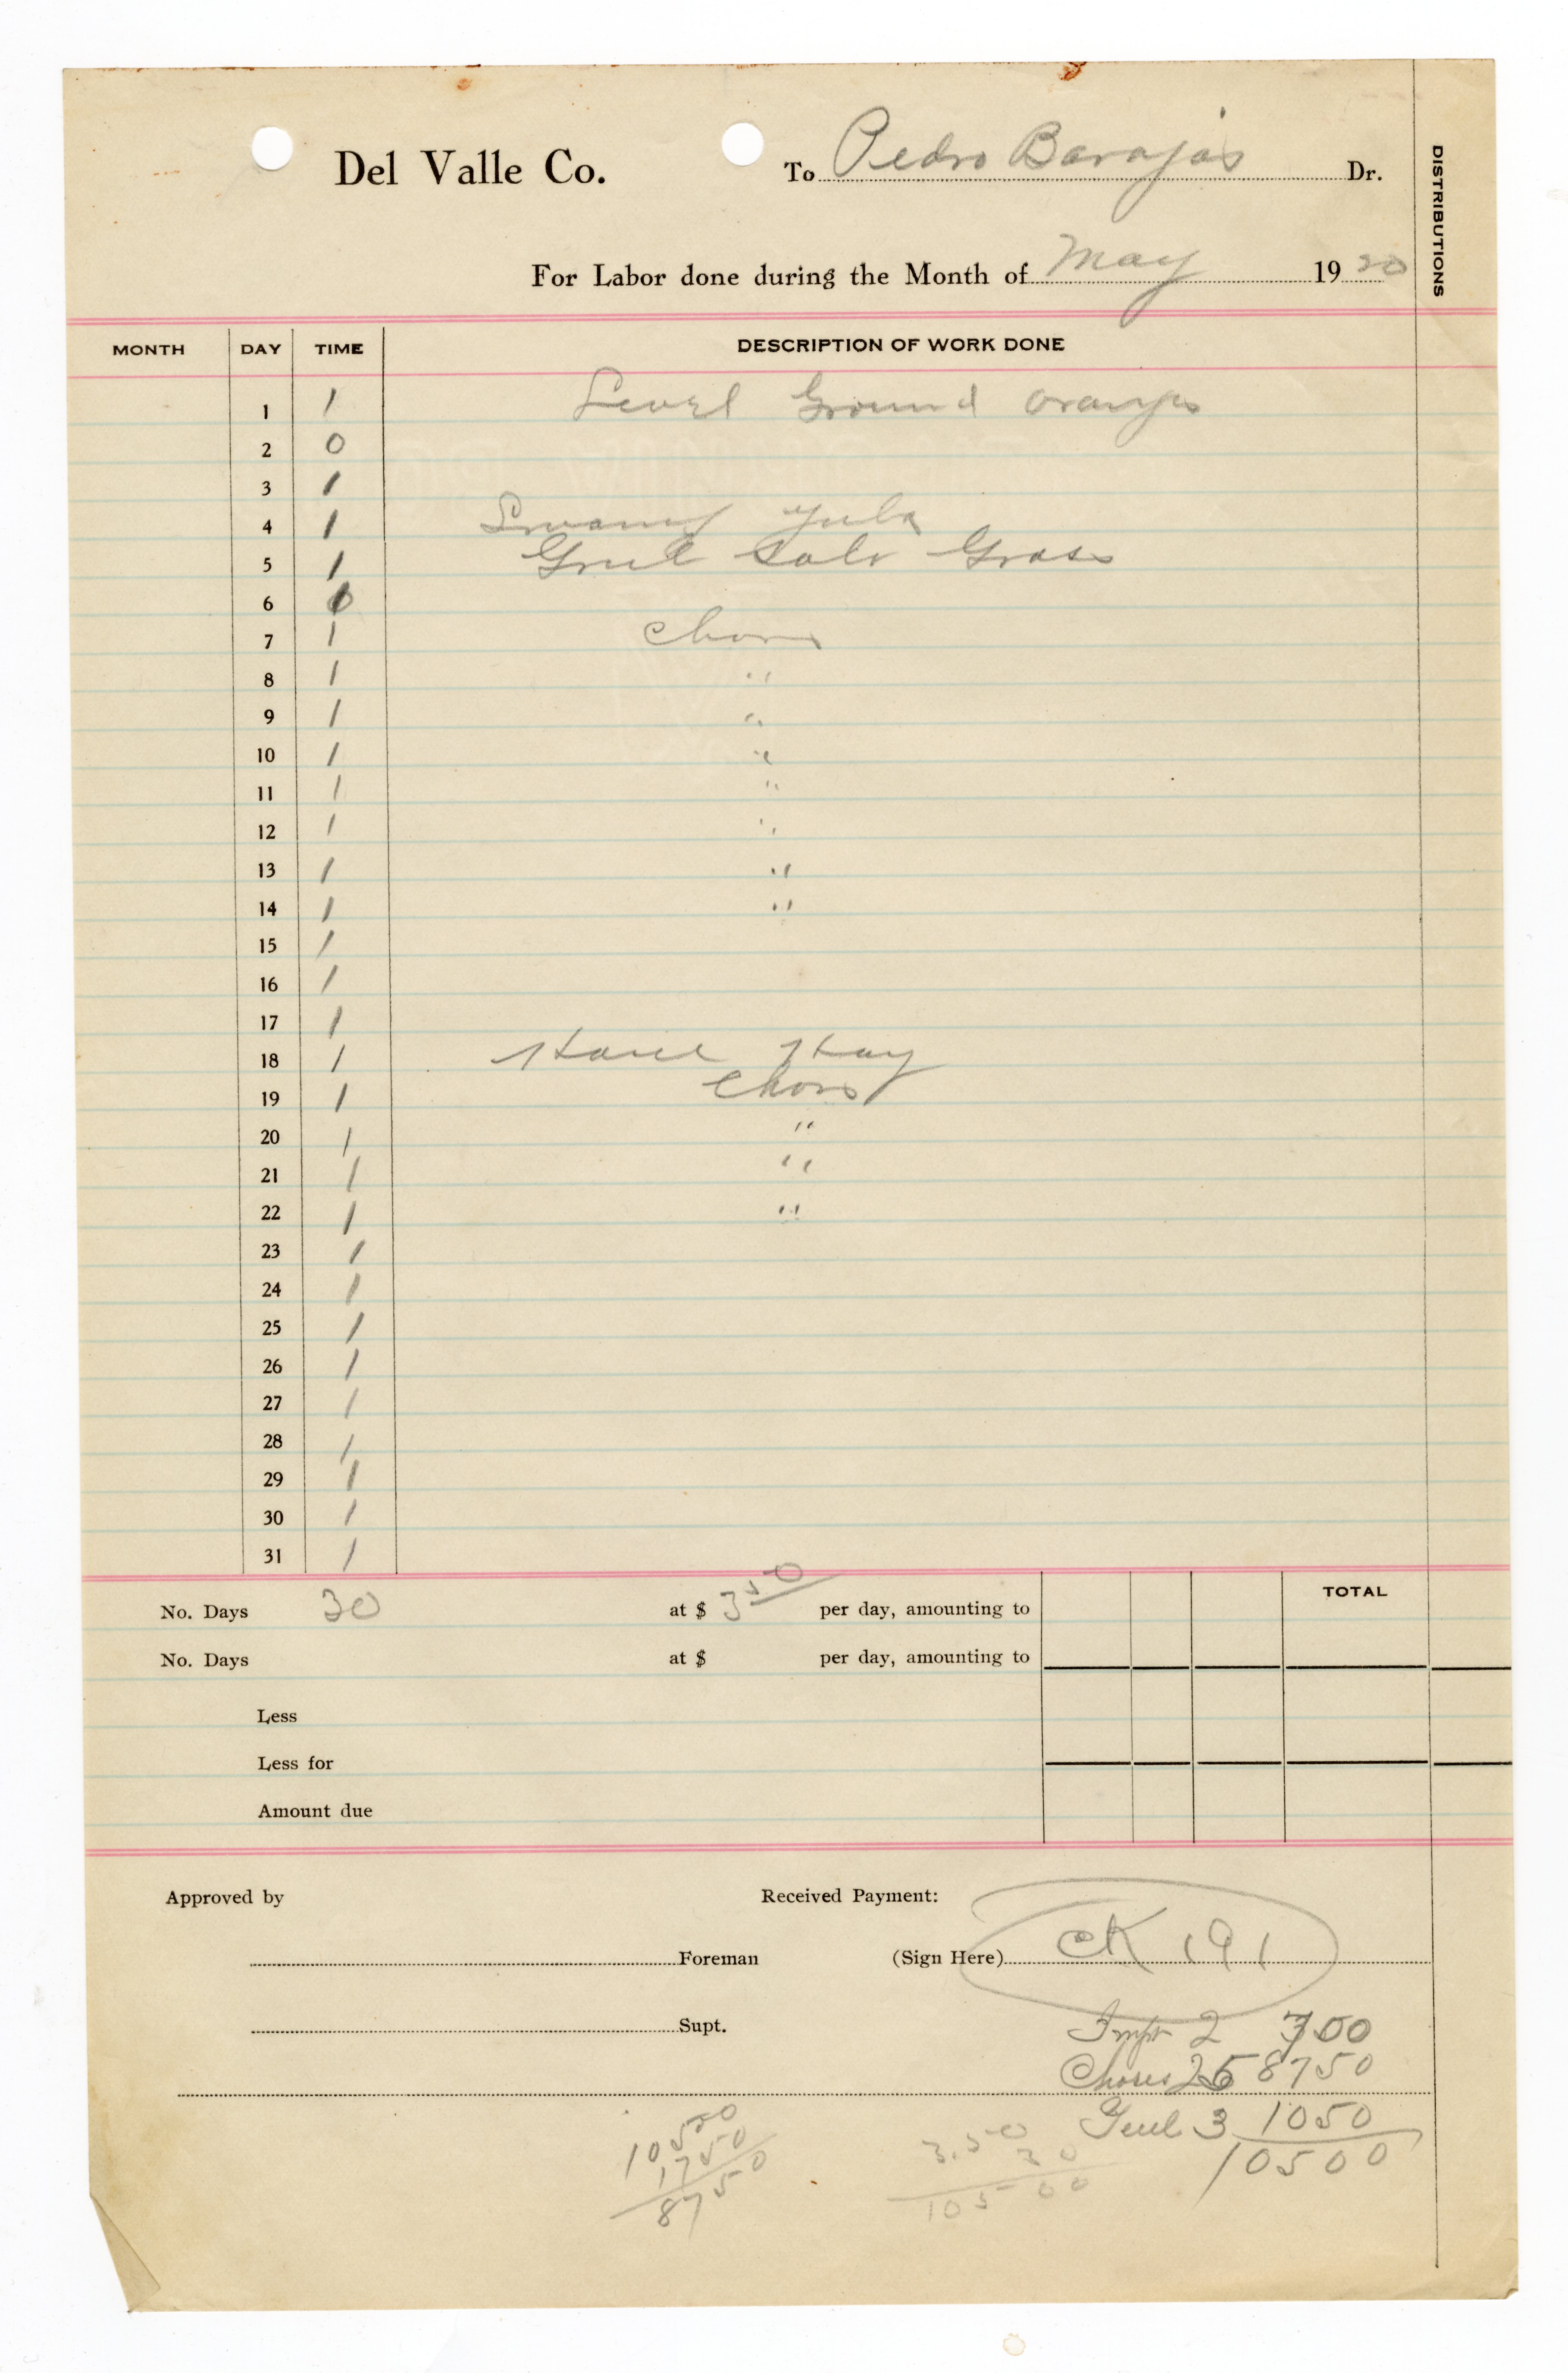 Del Valle Co. To Pedro Barajas Dr.
DISTRIBUTIONS
For Labor done during the Month of May 1920
MONTH DAY TIME DESCRIPTION OF WORK DONE
1 1 Level Ground oranges
2 0
3 1
4 1
5 1 Grass
6
7 1 Chors
8 1 "
9 1 "
10 1 "
11 1 "
12 1 "
13 1 "
14 1 "
15 1
16 1
17 1
18 1 Haul Hay
19 1 Chors
20 1 "
21 1 "
22 1 "
23 1
24 1
25 1
26 1
27 1
28 1
29 1
30 1
31 1
TOTAL
No. Days 30 at $ 3 50 per day, amounting to
No. Days at $ per day, amounting to
Less
Less for
Amount due
Approved by Received Payment:
Foreman (Sign Here) CK 191
Supt. 2 7.00
Chores 25 8750
3 1050
10500
10500
1750
8750
3.50
30
10500